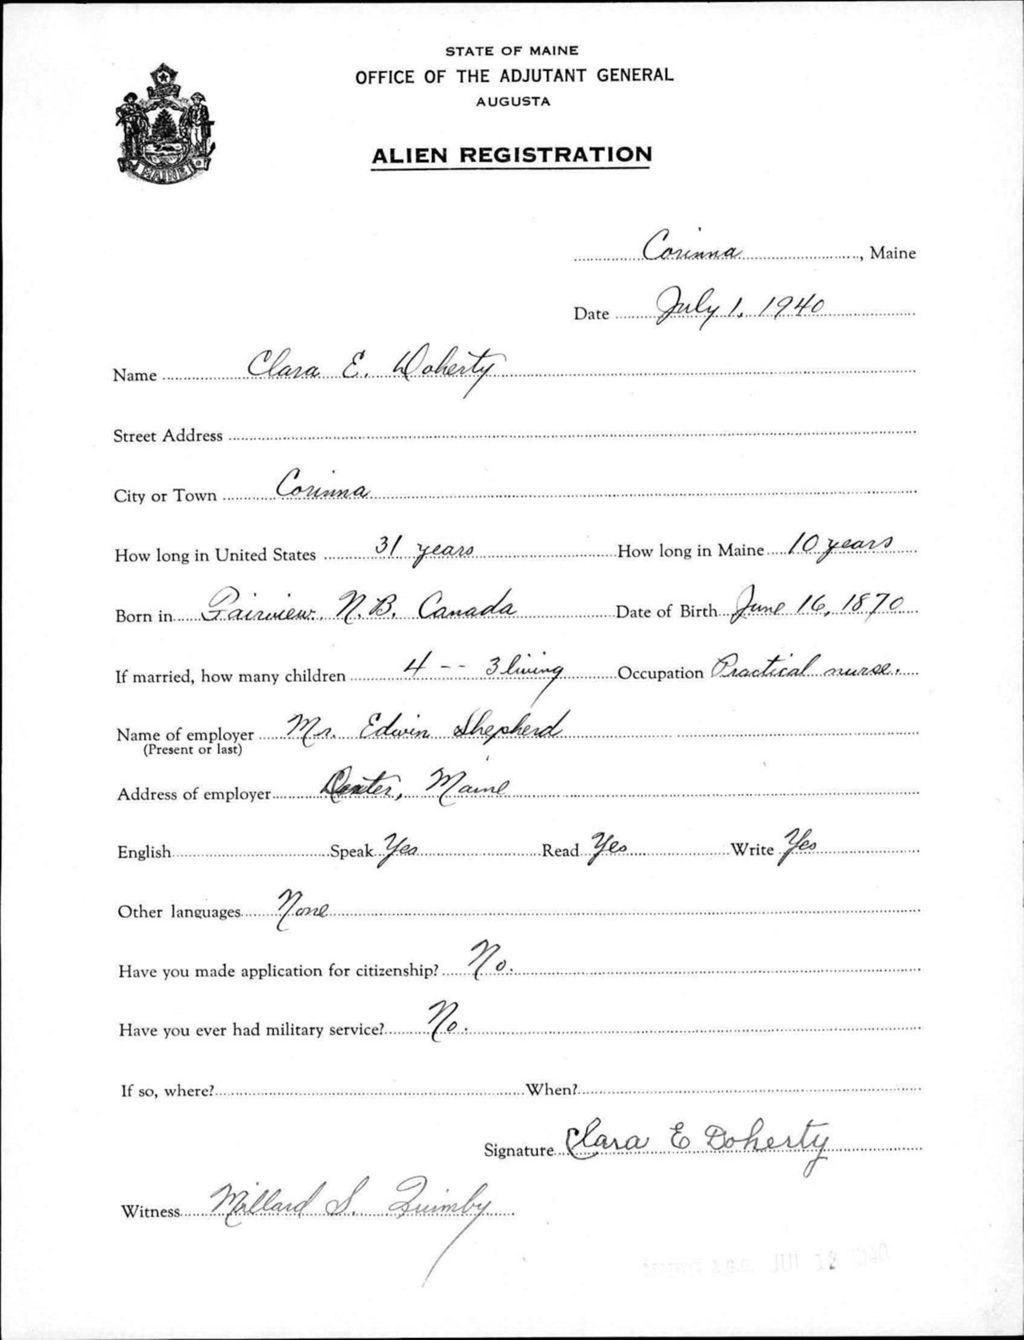 STATE OF MAINE
OFFICE OF THE ADJUTANT GENERAL
AUGUSTA
ALIEN REGISTRATION
MAINE
Corinna, Maine
Date July 1, 1940
Name Clara E. Doherty
Street Address
City or Town Corinna
How long in United States 31 years How long in Maine 10 years
Born in Fairview, N.B. Canada Date of Birth June 16, 1870
If married, how many children 4 -- 3 living Occupation Practical nurse.
Name of employer Mr. Edwin Shepherd
(Present or last)
Address of employer Dexter, Maine
English Speak Yes Read Yes Write Yes
Other languages None
Have you made application for citizenship? No.
Have you ever had military service? No.
If so, where? When?
Signature Clara E Doherty
Witness Millard S. Quimby
A.G.O. JUL 12 1940